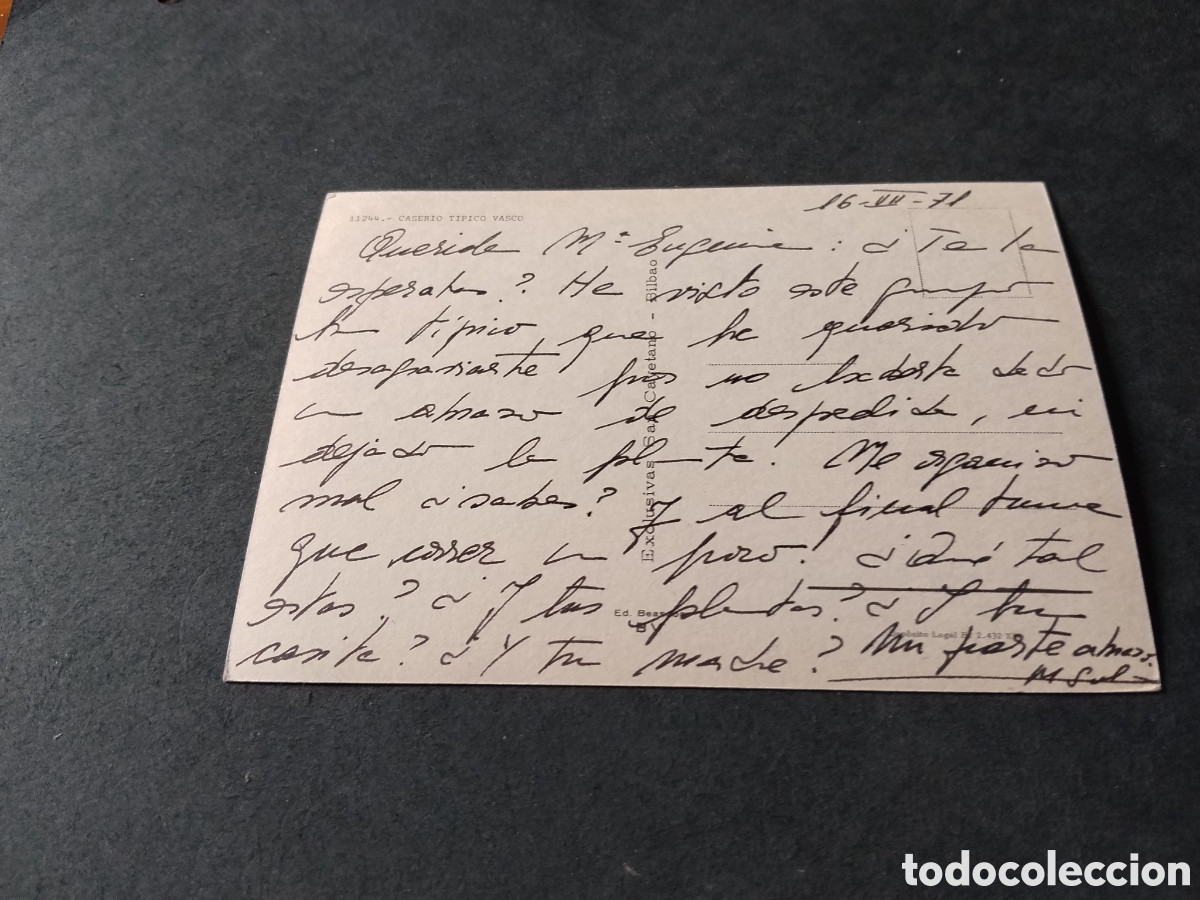 16-VII-71
11244.- CASERIO TIPICO VASCO
Querida Mª Eugenia: ¿Te la
esperabas? He visto este grupo
tan típico que he querido
desagraviarte pues no haberte dado
un abrazo de despedida, ni
dejado la planta. Me organizo
mal ¿sabes? Y al final tuve
que correr un poco. ¿Qué tal
estas? ¿Y tus plantas? ¿Y tu
casita? ¿Y tu madre? Un fuerte abrazo.
M Sol
Exclusivas San Cayetano - Bilbao
Ed. 
Depósito Legal B. 2.432
todocoleccion